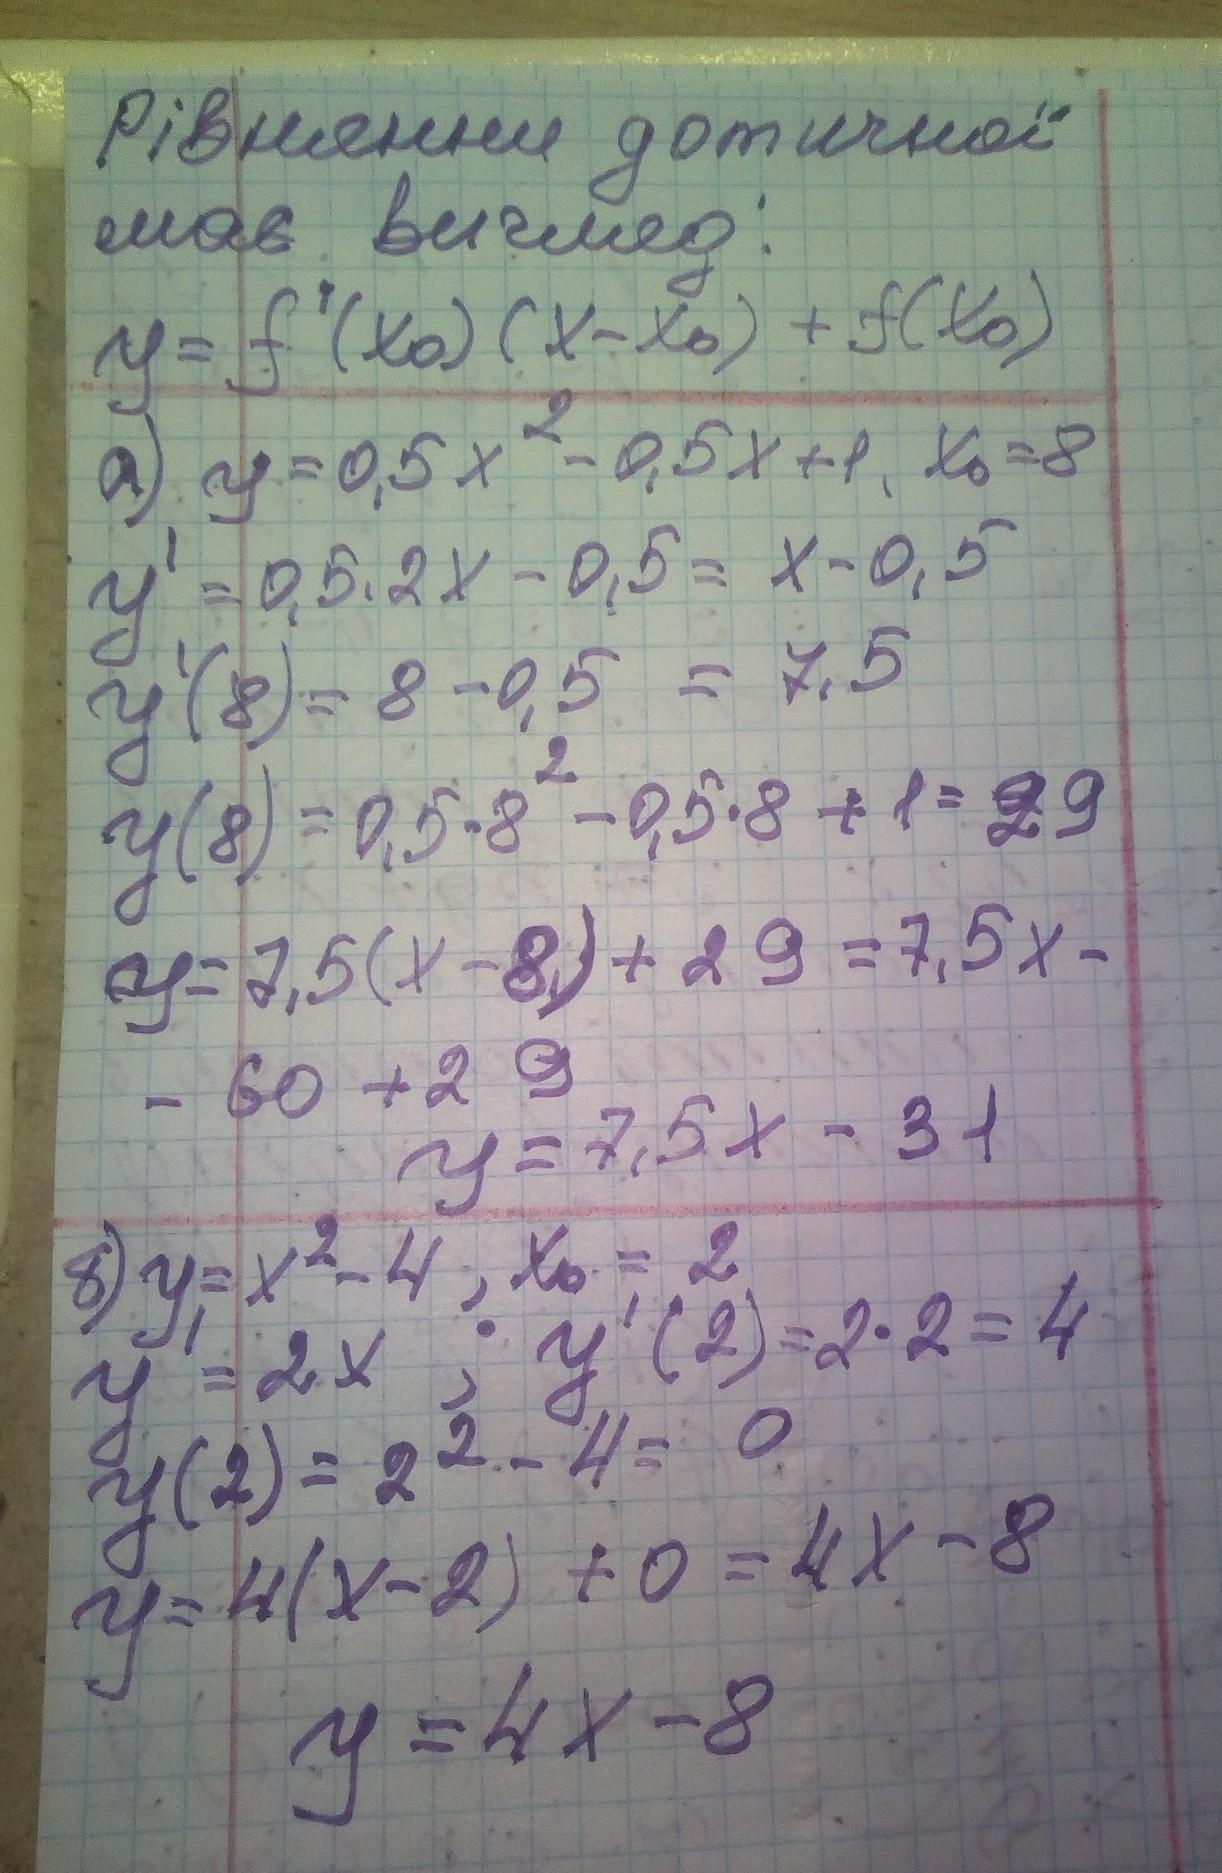 Рівняння дотичної
має вигляд:
y = f'(x₀)(x - x₀) + f(x₀)
а) y = 0,5x² - 0,5x + 1, x₀ = 8
y' = 0,5·2x - 0,5 = x - 0,5
y'(8) = 8 - 0,5 = 7,5
y(8) = 0,5·8² - 0,5·8 + 1 = 29
y = 7,5(x - 8) + 29 = 7,5x -
- 60 + 29
y = 7,5x - 31
б) y = x² - 4, x₀ = 2
y' = 2x ; y'(2) = 2·2 = 4
y(2) = 2² - 4 = 0
y = 4(x - 2) + 0 = 4x - 8
y = 4x - 8